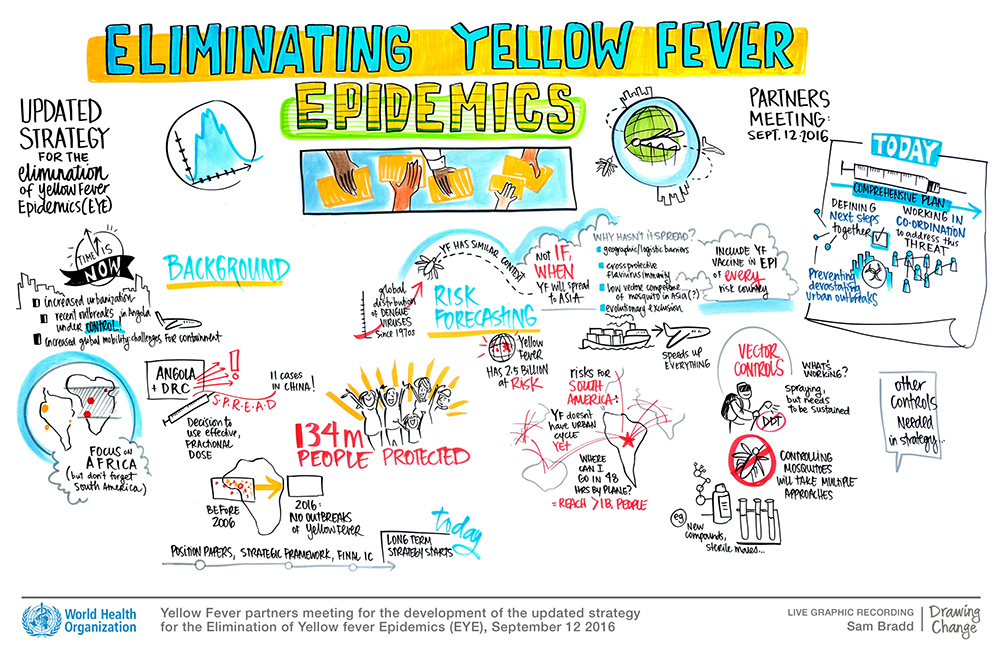 ELIMINATING YELLOW FEVER
EPIDEMICS
UPDATED
STRATEGY
FOR THE
elimination
of Yellow Fever
Epidemics (EYE)
PARTNERS
MEETING:
SEPT. 12 2016
TODAY
COMPREHENSIVE PLAN
DEFINING
Next steps
together
WORKING IN
CO-ORDINATION
to address this
THREAT
Preventing
devastating
urban outbreaks
TIME IS
NOW
increased urbanization
recent outbreaks in Angola
under CONTROL
increased global mobility challenges for containment
BACKGROUND
FOCUS ON
AFRICA
(but don't forget
South America)
ANGOLA
+ DRC
S.P.R.E.A.D
!
11 CASES
IN CHINA!
Decision to
use effective,
FRACTIONAL
DOSE
134m
PEOPLE PROTECTED
BEFORE
2006
2016:
NO OUTBREAKS
of Yellow Fever
POSITION PAPERS, STRATEGIC FRAMEWORK, FINAL IC
today
LONG TERM
STRATEGY STARTS
global
distribution
of DENGUE
VIRUSES
Since 1970s
YF HAS SIMILAR CONTEXT
RISK
FORECASTING
NOT IF,
WHEN
YF will spread
to ASIA
WHY HASN'T it SPREAD?
geographic/logistic barriers
cross protective
flavivirus immunity
low vector competence
of mosquito in Asia (?)
evolutionary exclusion
INCLUDE YF
VACCINE in EPI
of every
risk country
SPEEDS UP
EVERYTHING
Yellow
Fever
HAS 2.5 BILLION
at RISK
risks for
SOUTH
AMERICA:
YF doesn't
have URBAN
CYCLE
YET
WHERE
CAN I
GO IN 48
HRS BY PLANE?
= REACH >1B. PEOPLE
VECTOR
CONTROLS
WHAT'S
WORKING?
Spraying,
but needs
to be sustained
DDT
CONTROLLING
MOSQUITOES
WILL TAKE MULTIPLE
APPROACHES
eg
New
compounds,
sterile males...
other
controls
needed
in strategy...
World Health
Organization
Yellow Fever partners meeting for the development of the updated strategy
for the Elimination of Yellow fever Epidemics (EYE), September 12 2016
LIVE GRAPHIC RECORDING
Sam Bradd
Drawing
Change